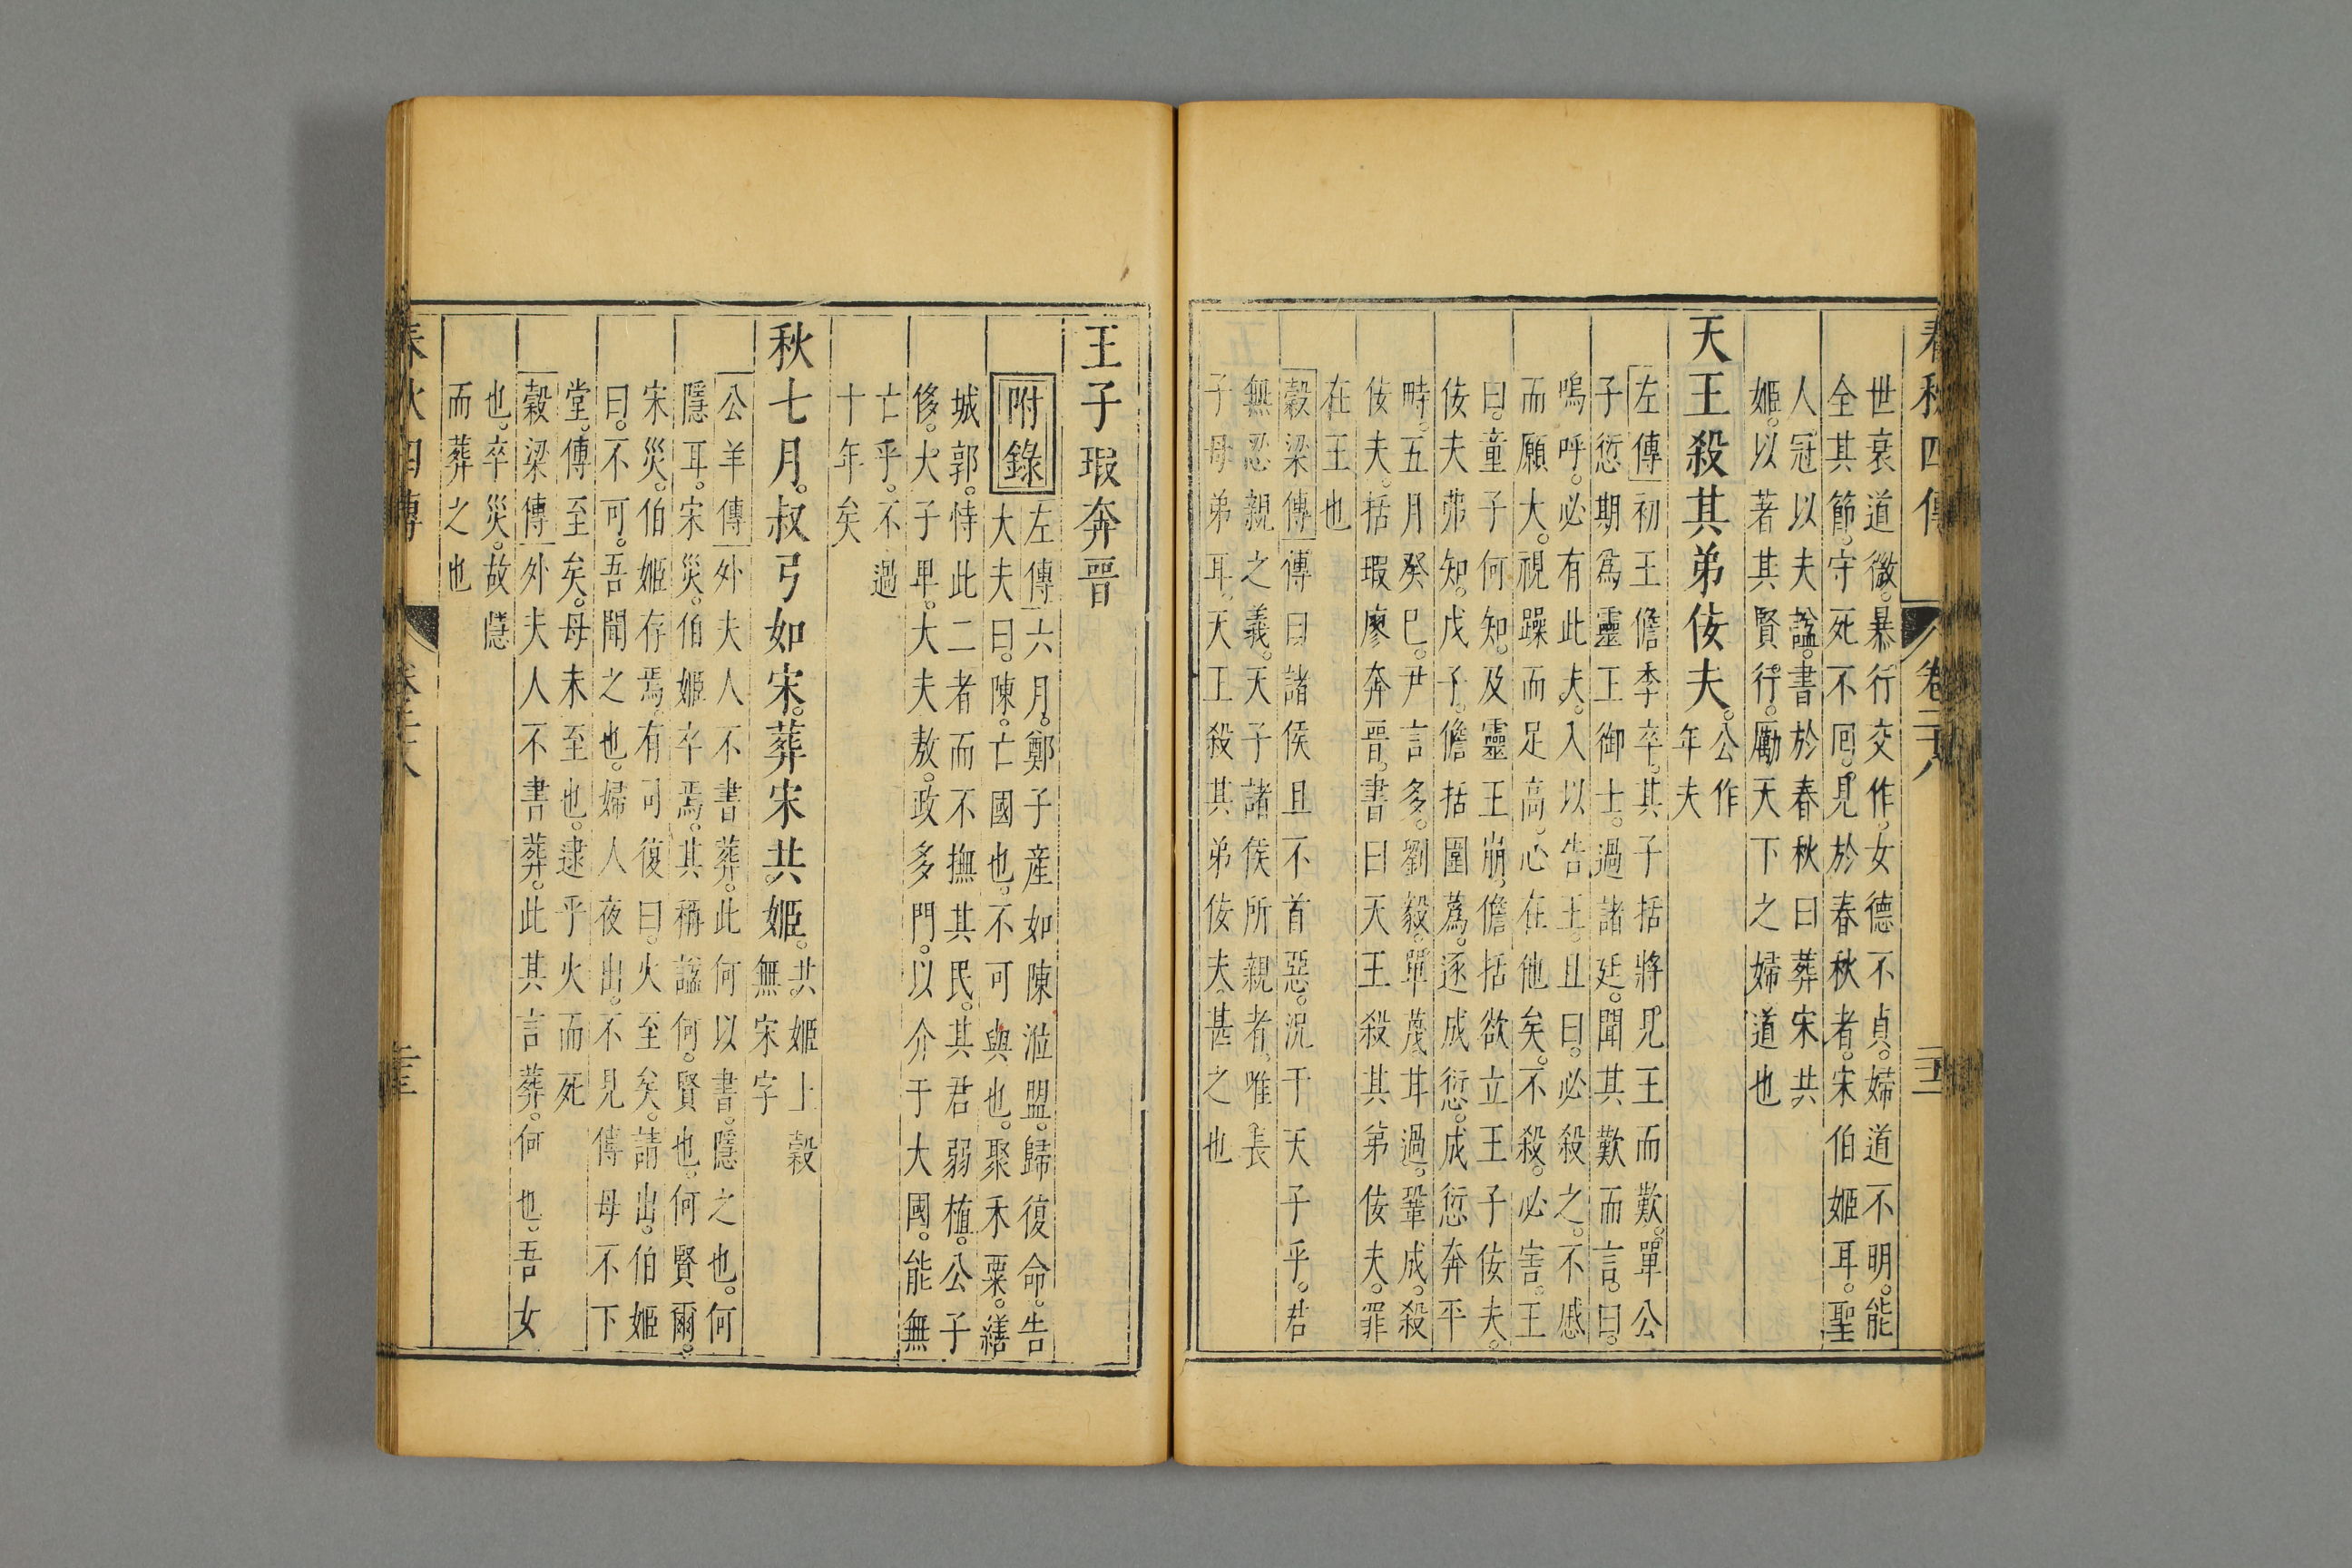 春秋四傳 卷二十八
世衰道微。暴行交作。女德不貞。婦道不明。能
全其節。守死不回。見於春秋者。宋伯姬耳。聖
人冠以夫諡。書於春秋曰葬宋共
姬。以著其賢行。厲天下之婦道也
天王殺其弟佞夫。公作
年夫
左傳初王儋季卒。其子括將見王而歎。單公
子愆期爲靈王御士。過諸廷。聞其歎而言。曰。
嗚呼。必有此夫。入以告王。且曰。必殺之。不慼
而願大。視躁而足高。心在他矣。不殺。必害。王
曰。童子何知。及靈王崩。儋括欲立王子佞夫。
佞夫弗知。戊子。儋括圍蔿。逐成愆。成愆奔平
畤。五月癸巳。尹言多。劉毅。單蔑。甘過。鞏成。殺
佞夫。括瑕廖奔晉。書曰天王殺其弟佞夫。罪
在王也
穀梁傳傳曰諸侯且不首惡。況于天子乎。君
無忍親之義。天子諸侯所親者。唯長
子母弟耳。天王殺其弟佞夫。甚之也
王子瑕奔晉
附錄左傳六月。鄭子產如陳涖盟。歸復命。告
大夫曰。陳。亡國也。不可與也。聚禾粟。繕
城郭。恃此二者而不撫其民。其君弱植。公子
侈。大子卑。大夫敖。政多門。以介于大國。能無
亡乎。不過
十年矣
秋七月。叔弓如宋。葬宋共姬。共姬上穀
無宋字
公羊傳外夫人不書葬。此何以書。隱之也。何
隱耳。宋災。伯姬卒焉。其稱諡何。賢也。何賢爾。
宋災。伯姬存焉。有司復曰。火至矣。請出。伯姬
曰。不可。吾聞之也。婦人夜出。不見傅母不下
堂。傳至矣。母未至也。逮乎火而死
穀梁傳外夫人不書葬。此其言葬。何也。吾女
也。卒災。故隱
而葬之也
春秋四傳